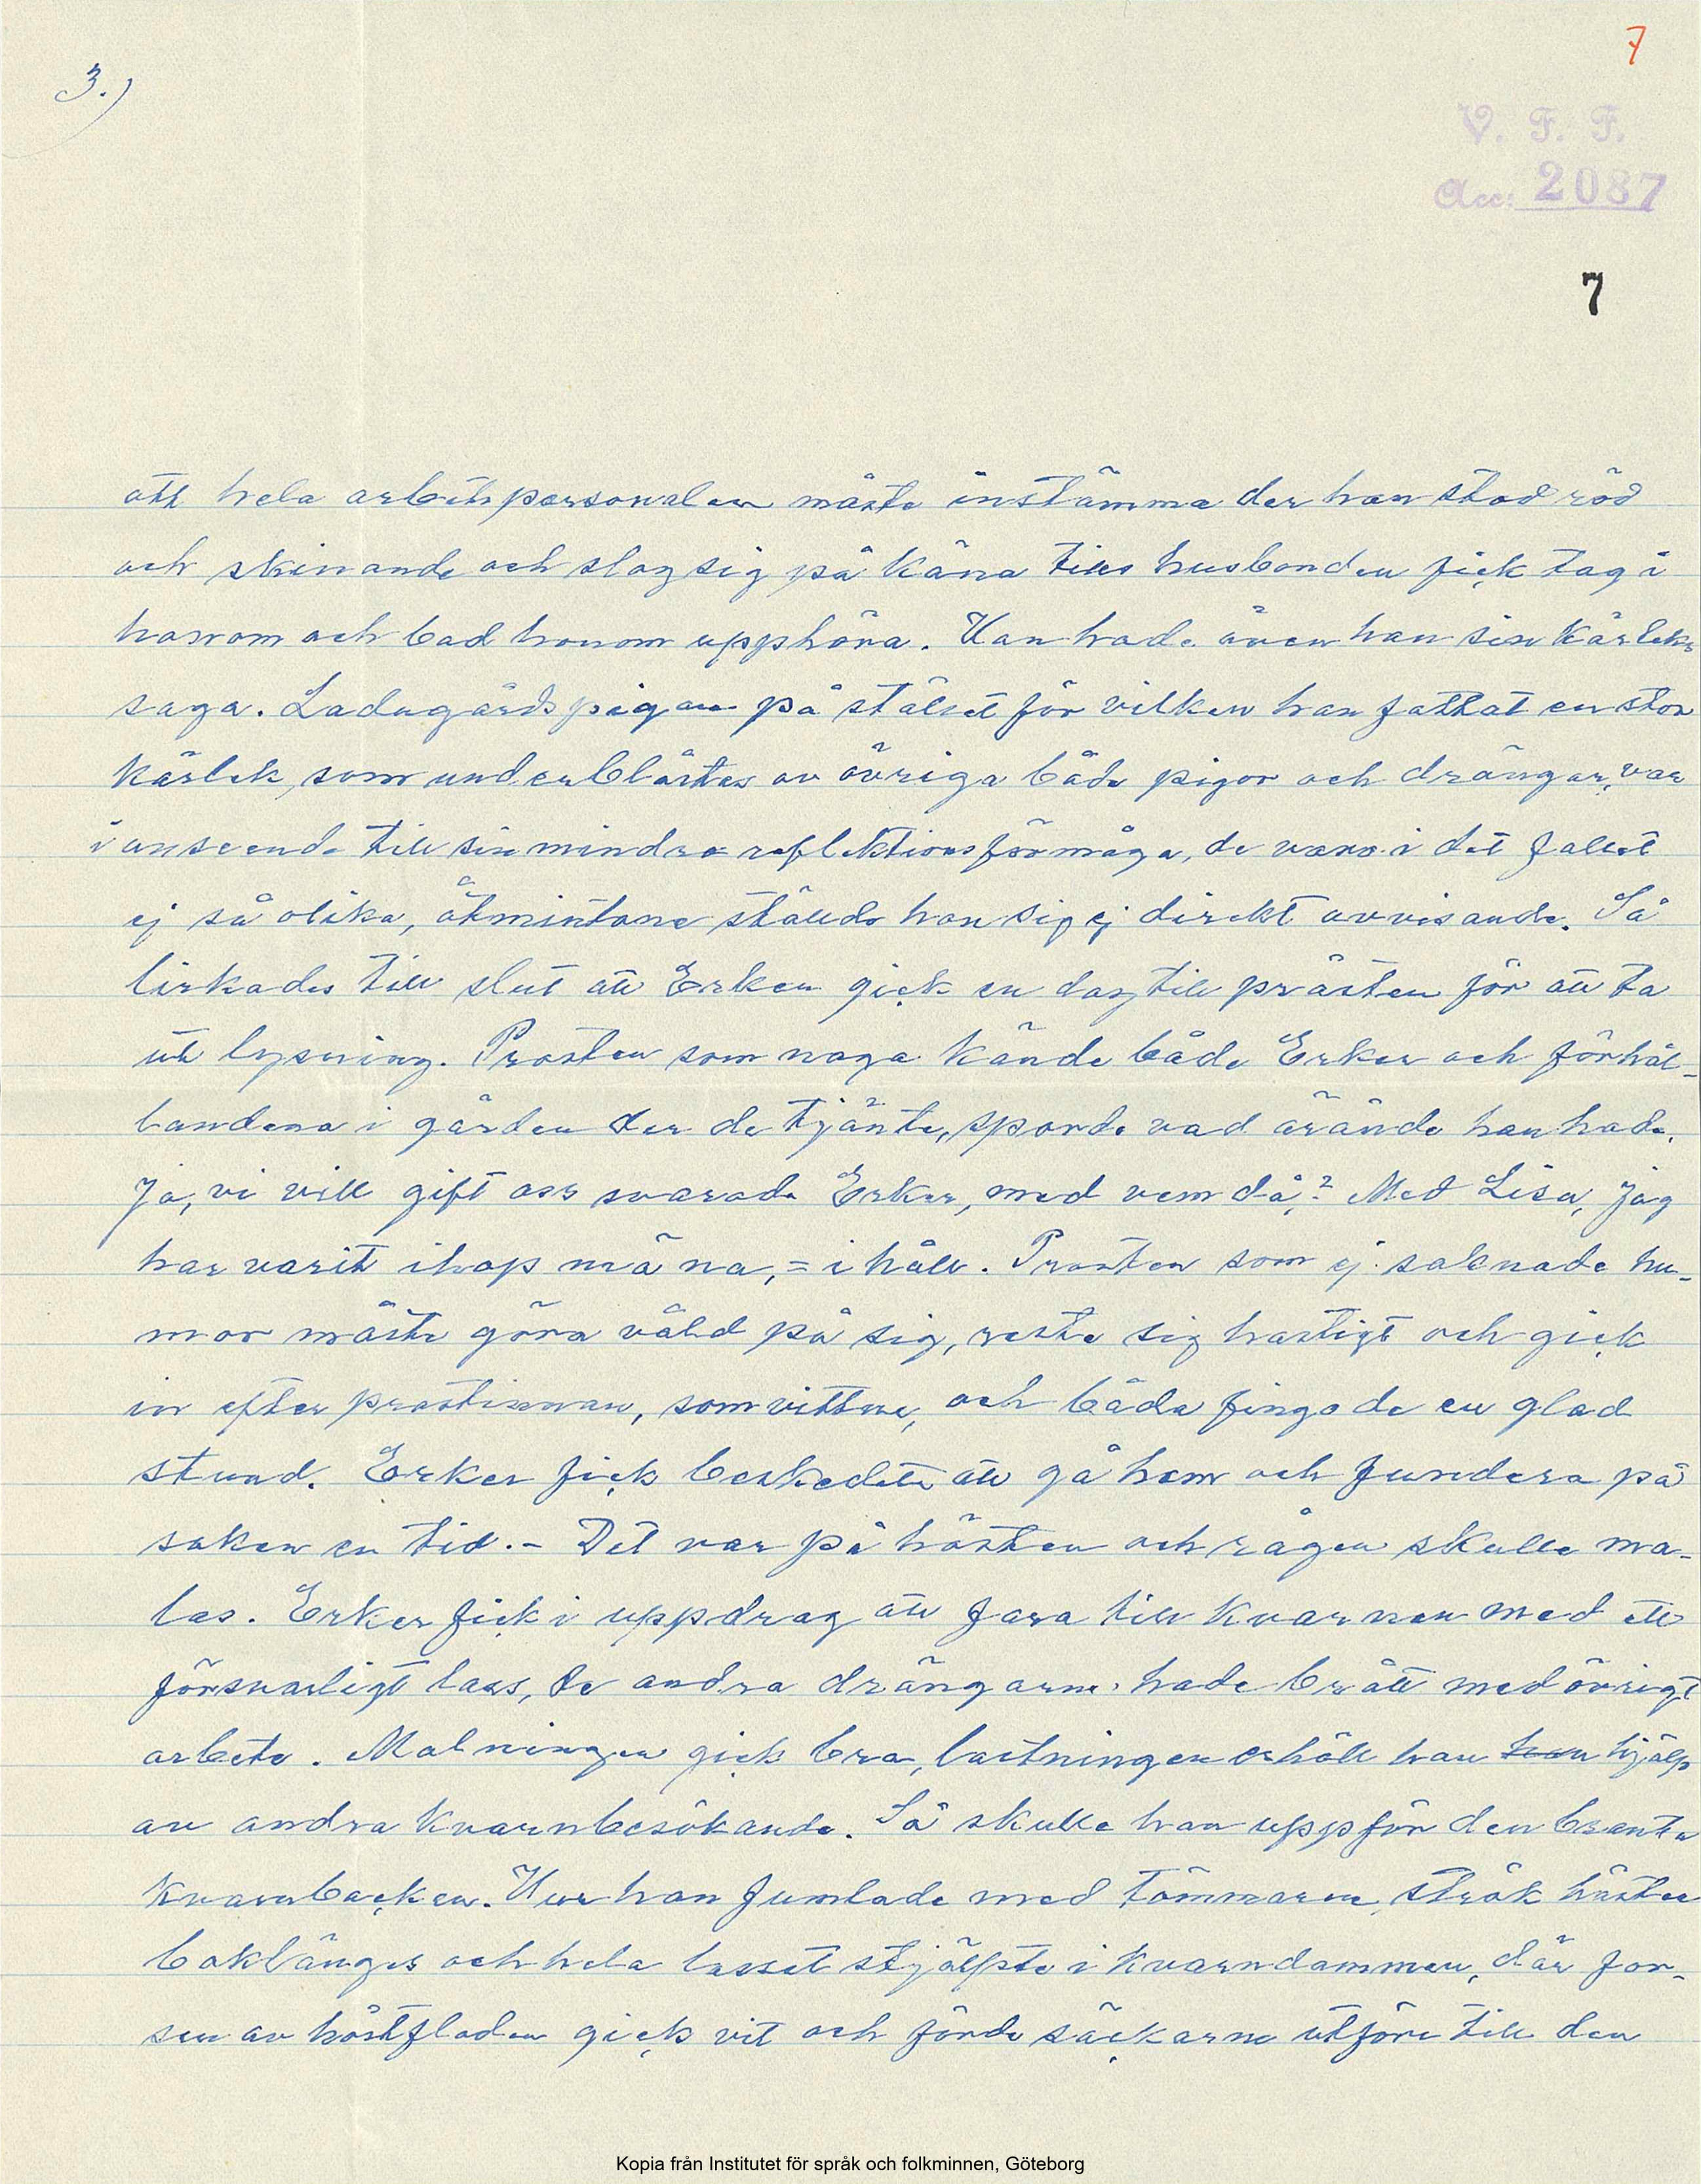 7
3.)
V. F. F.
Acc: 2087
7
att hela arbetspersonalen måste instämma der han stod röd
och skinande och slog sig på käna tills husbonden fick tag i
honom och bad honom upphöra. Han hade även han sin kärleks
saga. Ladugårdspigan på stället för vilken han fattat en stor
kärlek, som underblåstes av övriga både pigor och drängar, var
i anseende till sin mindre reflektionsförmåga, de voro i det fallet
ej så olika, åtmintone ställde hon sig ej direkt avvisande. Så
lirkades till slut att Erker gick en dag till prästen för att ta
ut lysning. Prosten som noga kände både Erker och förhål-
landena i gården der de tjänte, sporde vad ärände han hade.
Ja, vi vill gift oss svarade Erker, med vem då,? Med Lisa, jag
har varit ihop mä na, = i håll. Prosten som ej saknade hu-
mor måste göra våld på sig, reste sig hastigt och gick
in efter prostinnan, som vittne, och båda fingo de en glad
stund. Erker fick beskedet att gå hem och fundera på
saken en tid.- Det var på hösten och rågen skulle ma-
las. Erker fick i uppdrag att fara till kvarnen med ett
försvarligt lass, de andra drängarne hade brått med övrigt
arbete. Malningen gick bra, lastningen erhöll han han hjälp
av andra kvarnbesökande. Så skulle han uppför den branta
kvarnbacken. Hur han fumlade med tömmarne, strök hästen
baklänges och hela lasset stjälpte i kvarndammen, där for-
sen av höstfloden gick vit och förde säckarne utföre till den
Kopia från Institutet för språk och folkminnen, Göteborg